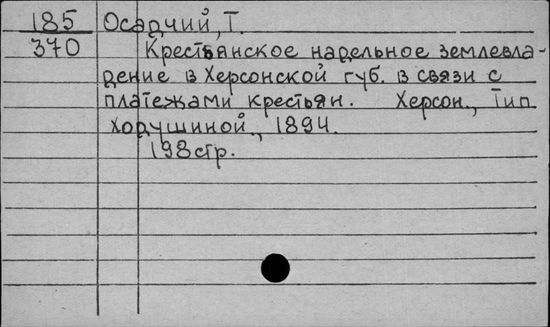 185 Осадчий, Т.
370 Крестьянское надельное землевла-
дение в Херсонской губ. в связи с
платежами крестьян. Херсон., Тип
Ходушиной., 1894.
198 стр.